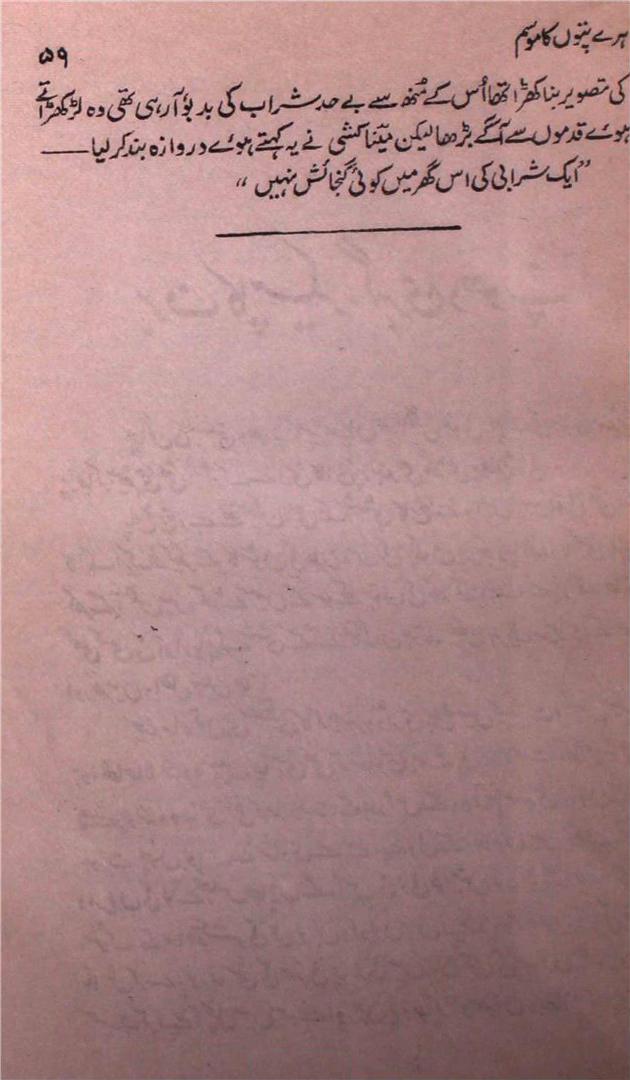 ہرے پتوں کا موسم
۵۹
کی تصویر بنا کھڑا تھا اُس کے مُنھ سے بے حد شراب کی بدبوٗ آرہی تھی وہ لڑکھڑاتے
ہوئے قدموں سے آگے بڑھا لیکن میناکشی نے یہ کہتے ہوئے دروازہ بند کر لیا ——
”ایک شرابی کی اس گھر میں کوئی گنجائش نہیں“